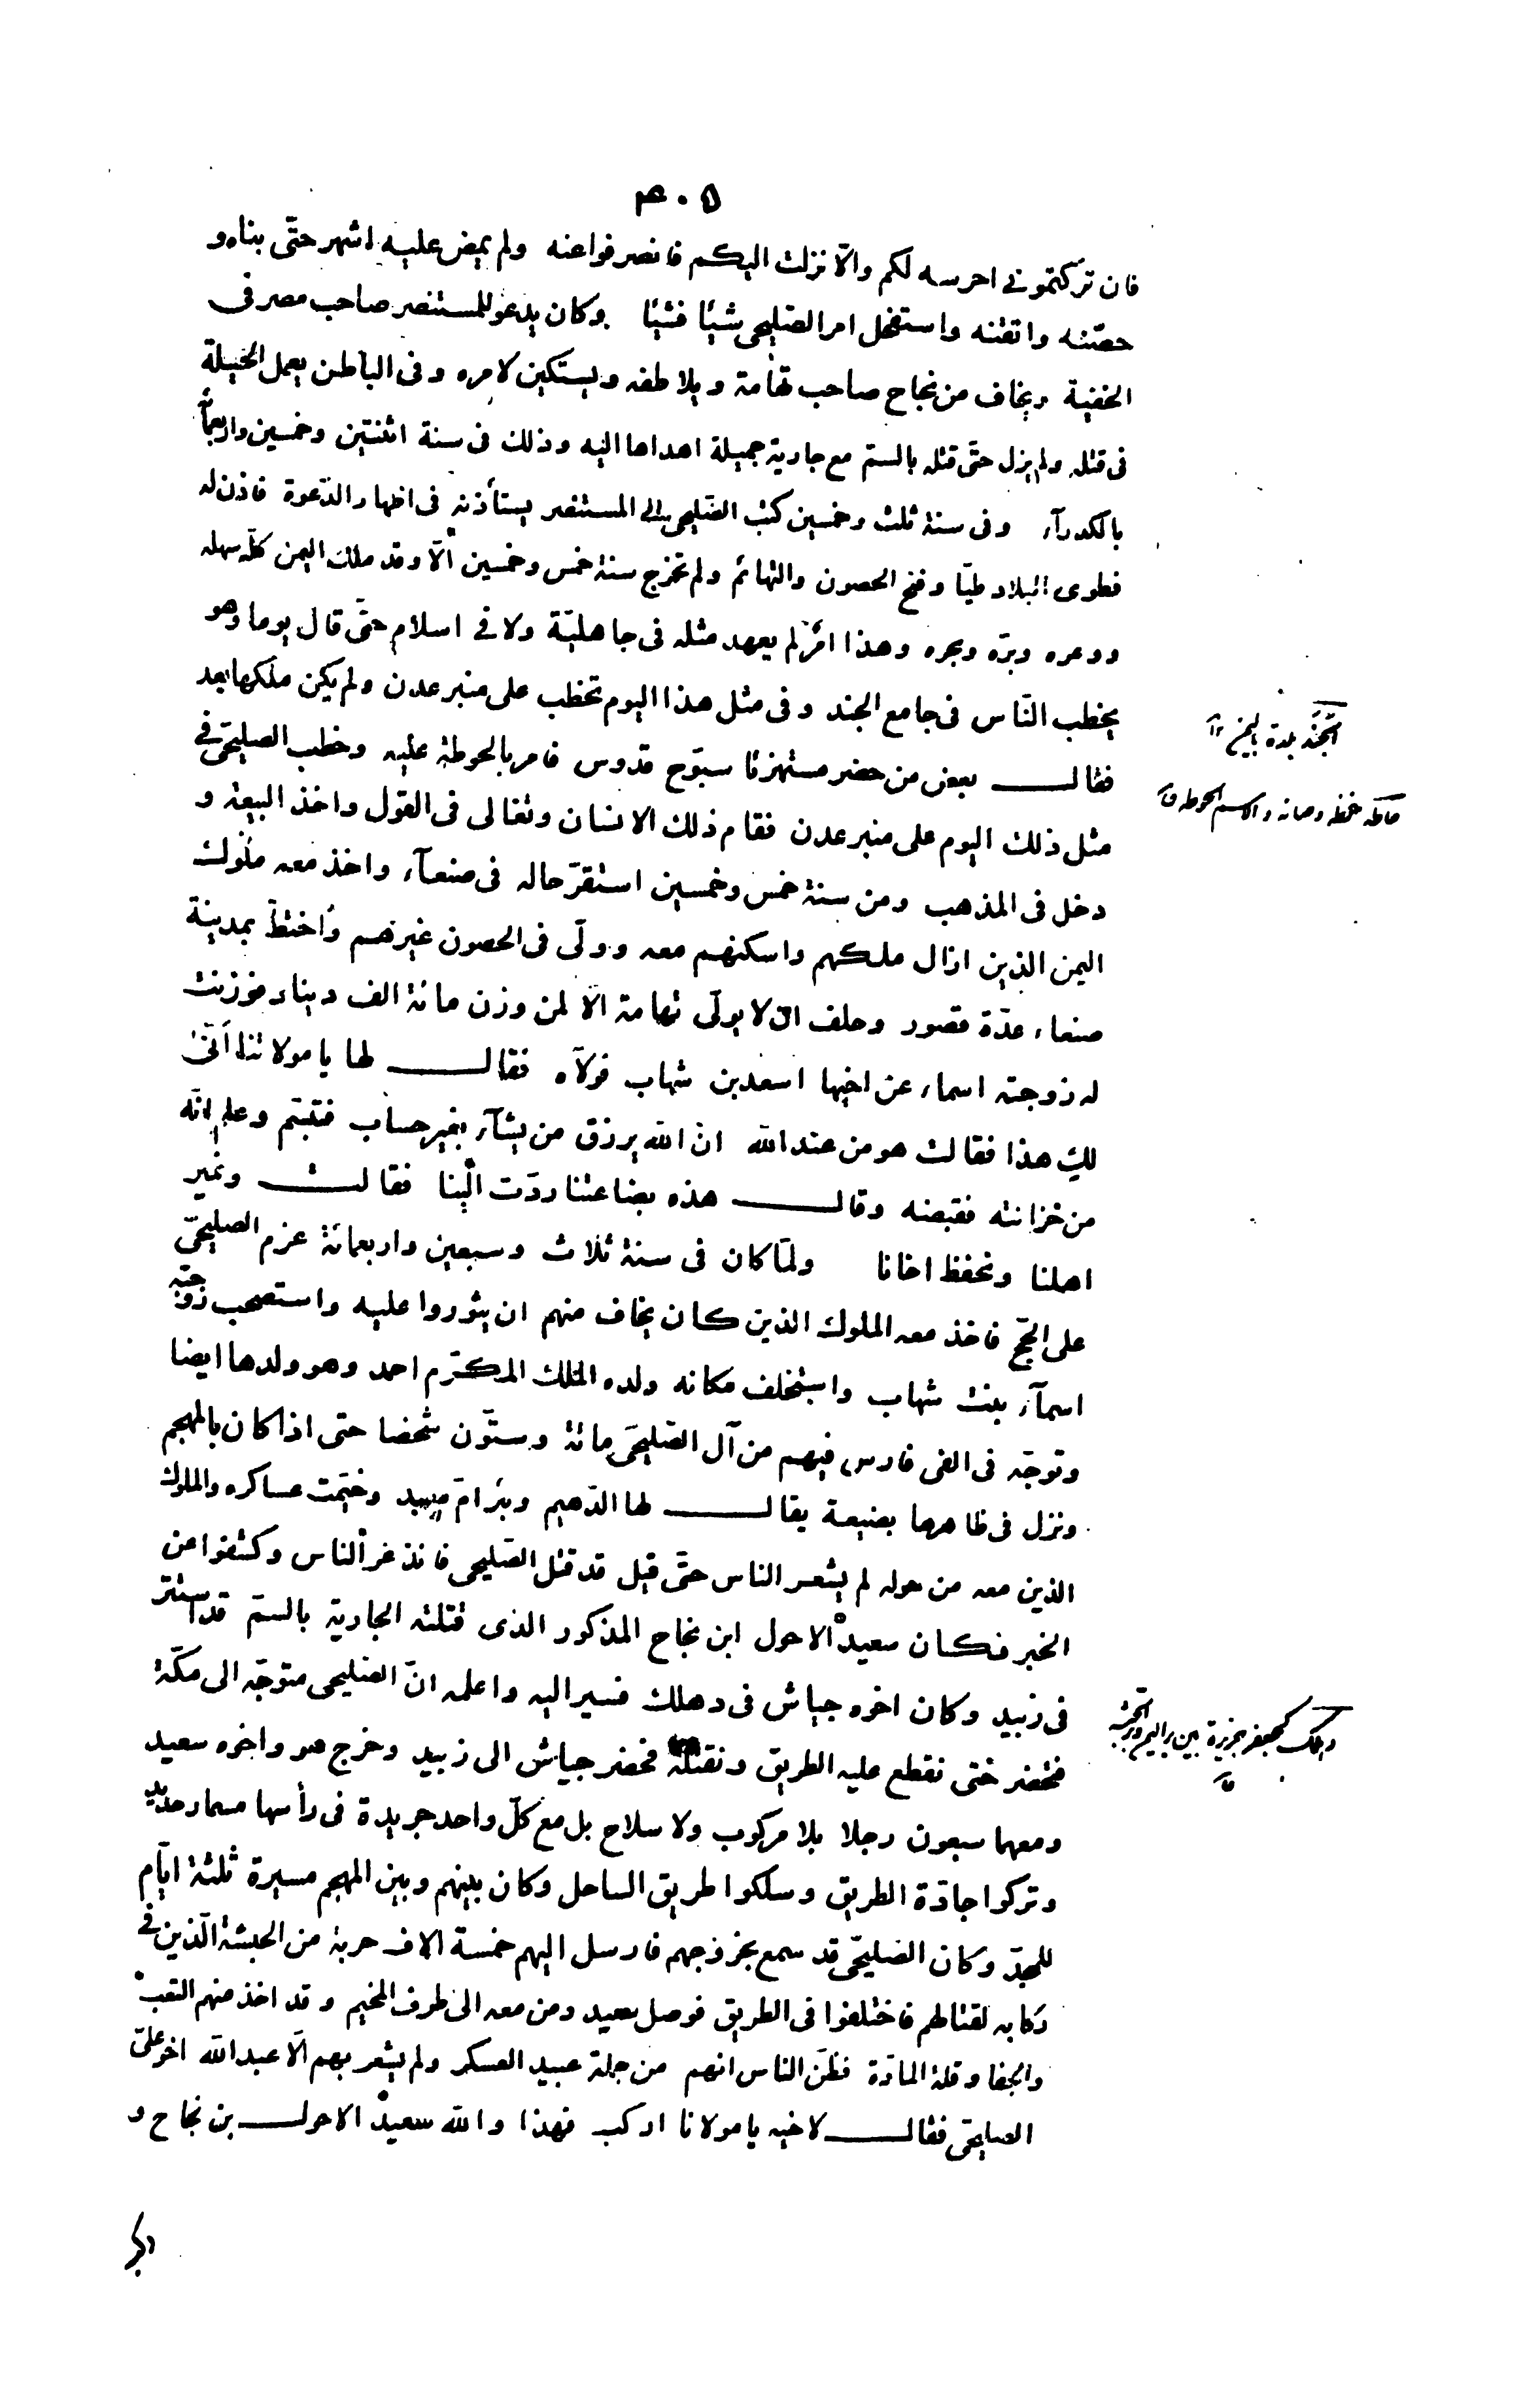 ٤٠٥
فان تركتموني احرسه لكم والّا نزلت اليكم فانصرفوا عنه ولم يمض عليه اشهر حتّى بناه و
حصّنه واتقنه واستفحل امر الصّليحى شيئًا فشيئًا وكان يدعو للمستنصر صاحب مصر فى
الخفية ويخاف من نجاح صاحب تهامة ويلاطفه ويستكين لامره وفى الباطن يعمل الحيلة
فى قتله ولم يزل حتّى قتله بالسمّ مع جارية جميلة اهداها اليه وذلك فى سنة اثنتين وخمسين واربعمأة
بالكدرآء وفى سنة ثلث وخمسين كتب الصّليحى الى المستنصر يستأذنه فى اظهار الدّعوة فاذن له
فطوى البلاد طيّا وفتح الحصون والتهائم ولم تخرج سنة خمس وخمسين الّا وقد ملك اليمن كلّه سهله
ووعره وبرّه وبحره وهذا امر لم يعهد مثله فى جاهليّة ولا فى اسلام حتّى قال يوما وهو
يخطب النّاس فى جامع الجند وفى مثل هذا اليوم تخطب على منبر عدن ولم يكن ملكها بعد
فقال بعض من حضر مستهزئا سبّوح قدّوس فامر بالحوطة عليه وخطب الصليحّى فى
مثل ذلك اليوم على منبر عدن فقام ذلك الانسان وتغالى فى القول واخذ البيعة و
دخل فى المذهب ومن سنة خمس وخمسين استقرّ حاله فى صنعآء واخذ معه ملوك
اليمن الذين ازال ملكهم واسكنهم معه وولّى فى الحصون غيرهم واختطّ بمدينة
صنعاء عدّة قصور وحلف ان لا يولّى تهامة الّا لمن وزن مائة الف دينار فوزنت
له زوجته اسماء عن اخيها اسعد بن شهاب فولّاه فقال لها يا مولاتنا أنّى
لك هذا فقالت هو من عند الله ان الله يرزق من يشآء بغير حساب فتبسّم وعلم انّه
من خزانته فقبضه وقال هذه بضاعتنا ردّت الينا فقالت ونمير
اهلنا ونحفظ اخانا ولمّا كان فى سنة ثلاث وسبعين واربعمائة عزم الصليحّى
على الحجّ فاخذ معه الملوك الذين كان يخاف منهم ان يثوروا عليه واستصحب زوجته
اسمآء بنت شهاب واستخلف مكانه ولده الملك المكرّم احمد وهو ولدها ايضا
وتوجّه فى الفى فارس فيهم من آل الصّليحى مائة وستّون شخصا حتى اذا كان بالمهجم
ونزل فى ظاهرها بضيعة يقال لها الدّهيم وبئر امّ معبد وخيّمت عساكره والملوك
الذين معه من حوله لم يشعر الناس حتّى قيل قد قتل الصّليحى فانذعر الناس وكشفوا عن
الخبر فكان سعيد الاحول ابن نجاح المذكور الذى قتلته الجارية بالسمّ قد استتر
فى زبيد وكان اخوه جياش فى دهلك فسير اليه واعلمه انّ الصّليحى متوجّه الى مكّة
فتحضر حتى نقطع عليه الطريق ونقتله فحضر جياش الى زبيد وخرج هو واخوه سعيد
ومعهما سبعون رجلا بلا مركوب ولا سلاح بل مع كلّ واحد جريدة فى رأسها مسمار حديد
وتركوا جادّة الطريق وسلكوا طريق الساحل وكان بينهم وبين المهجم مسيرة ثلثة ايّام
للمجدّ وكان الصّليحّى قد سمع بخروجهم فارسل اليهم خمسة آلاف حربة من الحبشة الّذين فى
ركابه لقتالهم فاختلفوا فى الطريق فوصل سعيد ومن معه الى طرف المخيم وقد اخذ منهم التعب
والجفا وقلة المادّة فظنّ الناس انهم من جملة عبيد العسكر ولم يشعر بهم الّا عبد الله اخو علىّ
الصليحّى فقال لاخيه يا مولانا اركب فهذا والله سعيد الاحول بن نجاح و
الجَنَد بلدة باليمن
حاطه حفظه وصانه والاسم الحوطة ق
دهلك كجعفر جزيرة بين بر اليمن وبر الحبشة